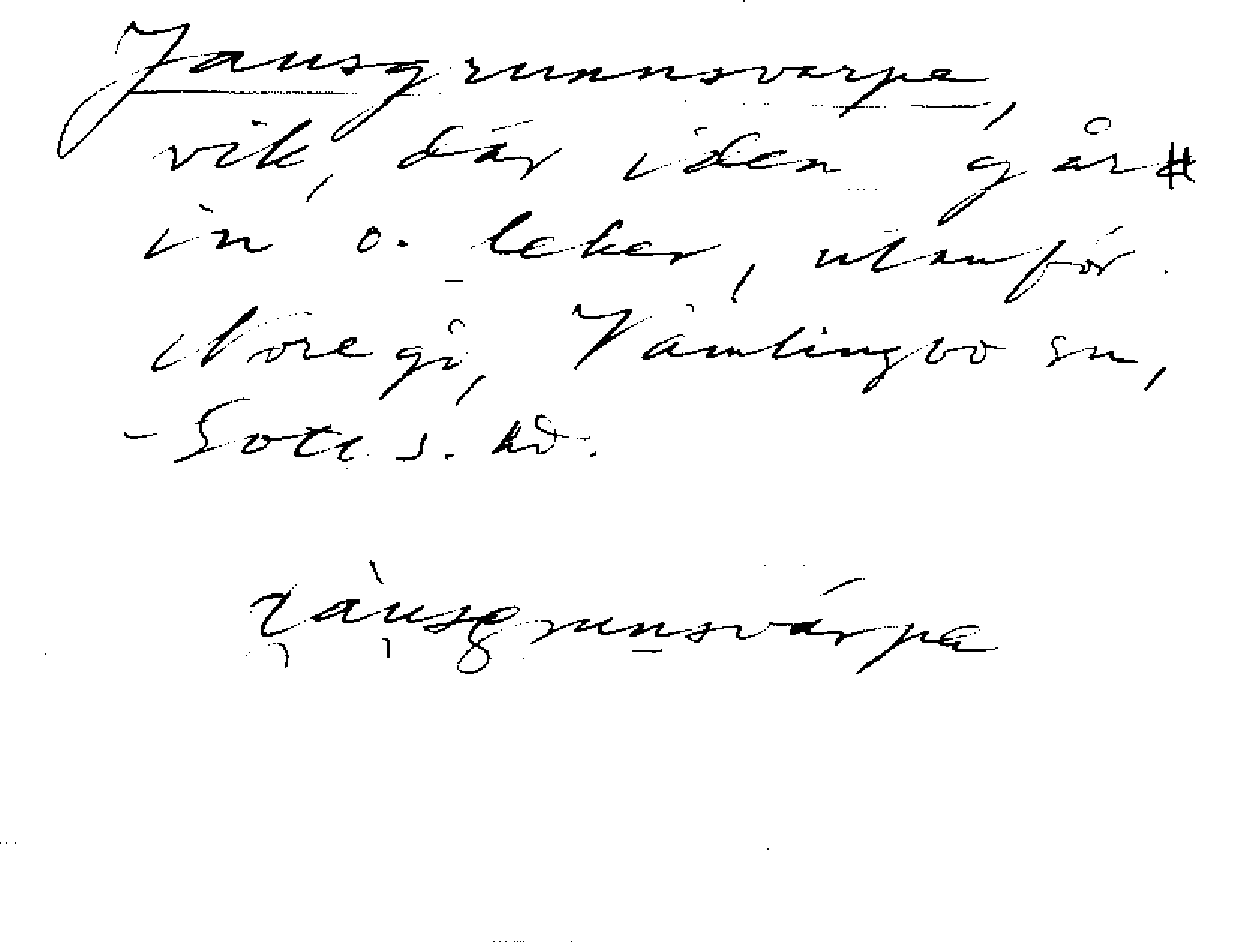 Jausgrunnsvarpe,
vik, där iden går #
in o. leker, utanför
Nore gå, Vamlingbo sn,
- Gotl. s. hd.
jausgrunsvarpa